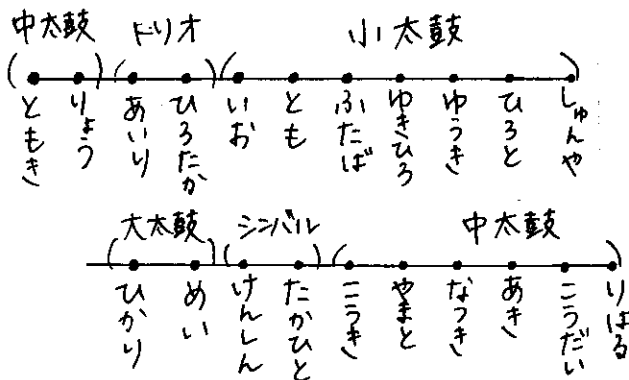 中太鼓 トリオ 小太鼓
ともき
りょう
あいり
ひろたか
いお
とも
ふたば
ゆきひろ
ゆうき
ひろと
しゅんや
大太鼓 シンバル 中太鼓
ひかり
めい
けんしん
たかひと
こうき
やまと
なつき
あき
こうだい
りはる